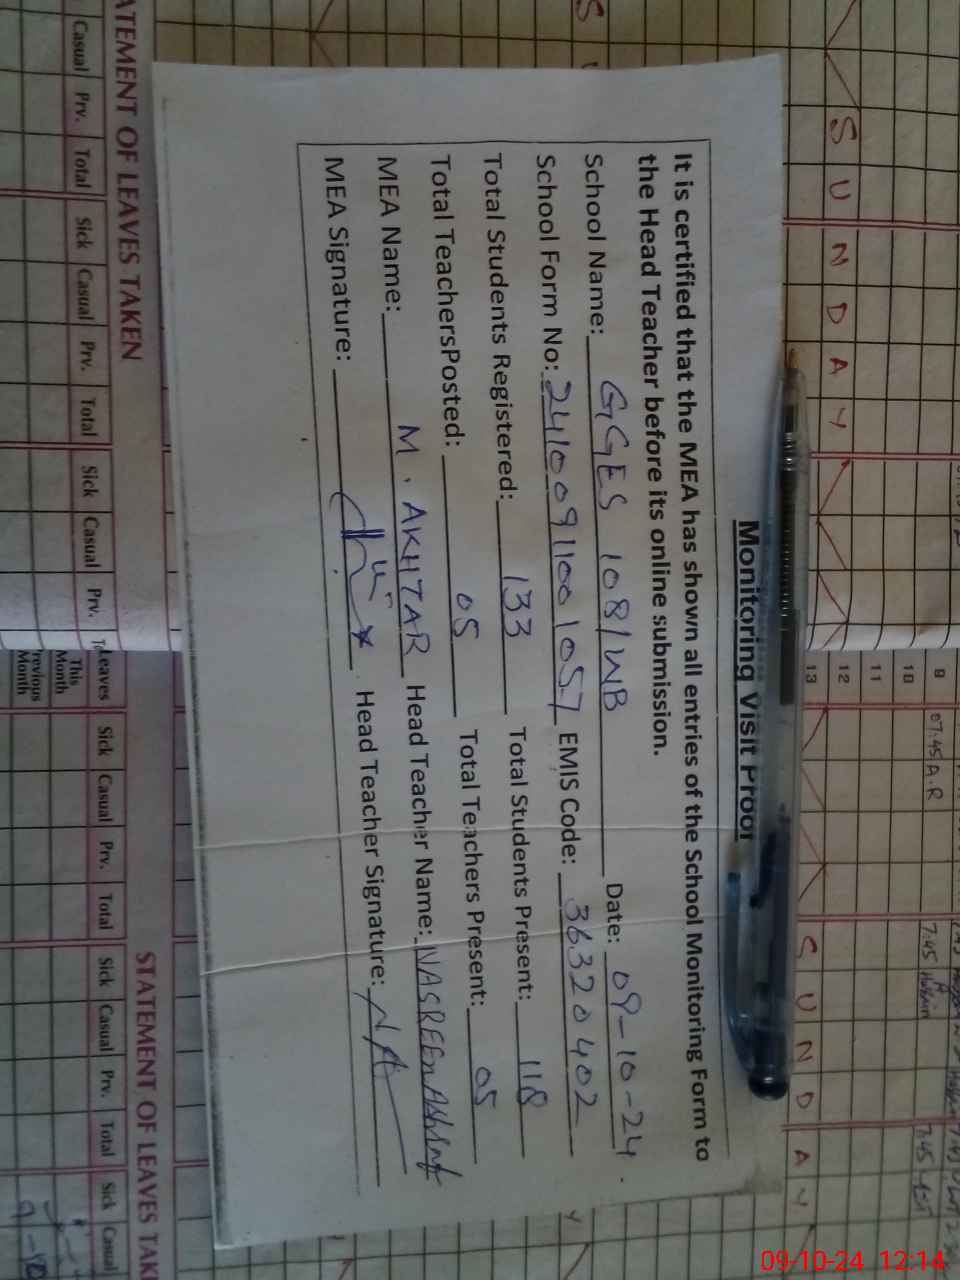 Monitoring Visit Proof
It is certified that the MEA has shown all entries of the School Monitoring Form to
the Head Teacher before its online submission.
School Name: GGES 108/WB Date: 09-10-24
School Form No: 24100911001057 EMIS Code: 36320402
Total Students Registered: 133 Total Students Present: 118
Total TeachersPosted: 05 Total Teachers Present: 05
MEA Name: M. AKHTAR Head Teacher Name: NASREEN Ashraf
MEA Signature: Head Teacher Signature: NA
SUNDAY
SUNDAY
9 07:45 A.R 7:45
10
11
12
13
STATEMENT OF LEAVES TAKEN
Casual Prv. Total Sick Casual Prv. Total Sick Casual Prv.
Leaves
This Month
Previous Month
STATEMENT OF LEAVES TAK
Sick Casual Prv. Total Sick Casual Prv. Total Sick Casual
09-10-24 12:14